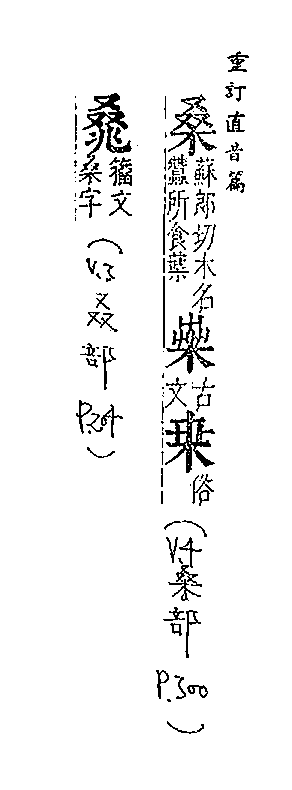 重訂直音篇
桑蘇郎切木名蠶所食葉 古文 桒俗（V.4桑部 P.300）
籀文桑字（V.3叒部 P.204）